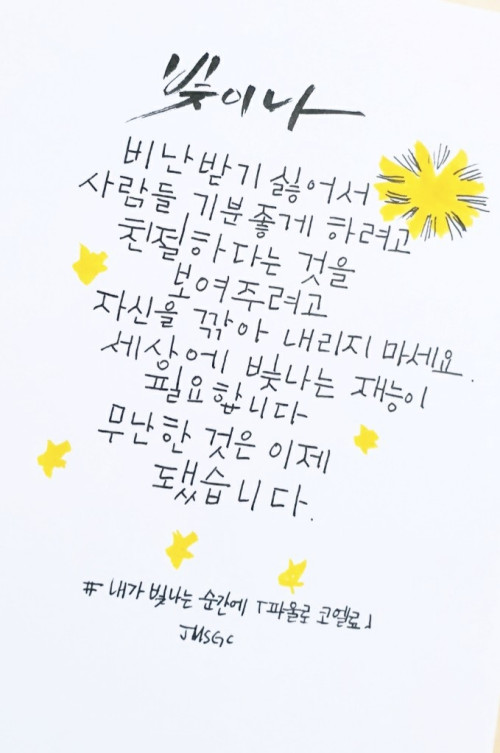 빛이나
비난받기 싫어서
사람들 기분좋게 하려고
친절하다는 것을
보여주려고
자신을 깎아 내리지 마세요.
세상에 빛나는 재능이
필요합니다
무난한 것은 이제
됐습니다.
# 내가 빛나는 순간에 「파울로 코엘료」
JMSGC